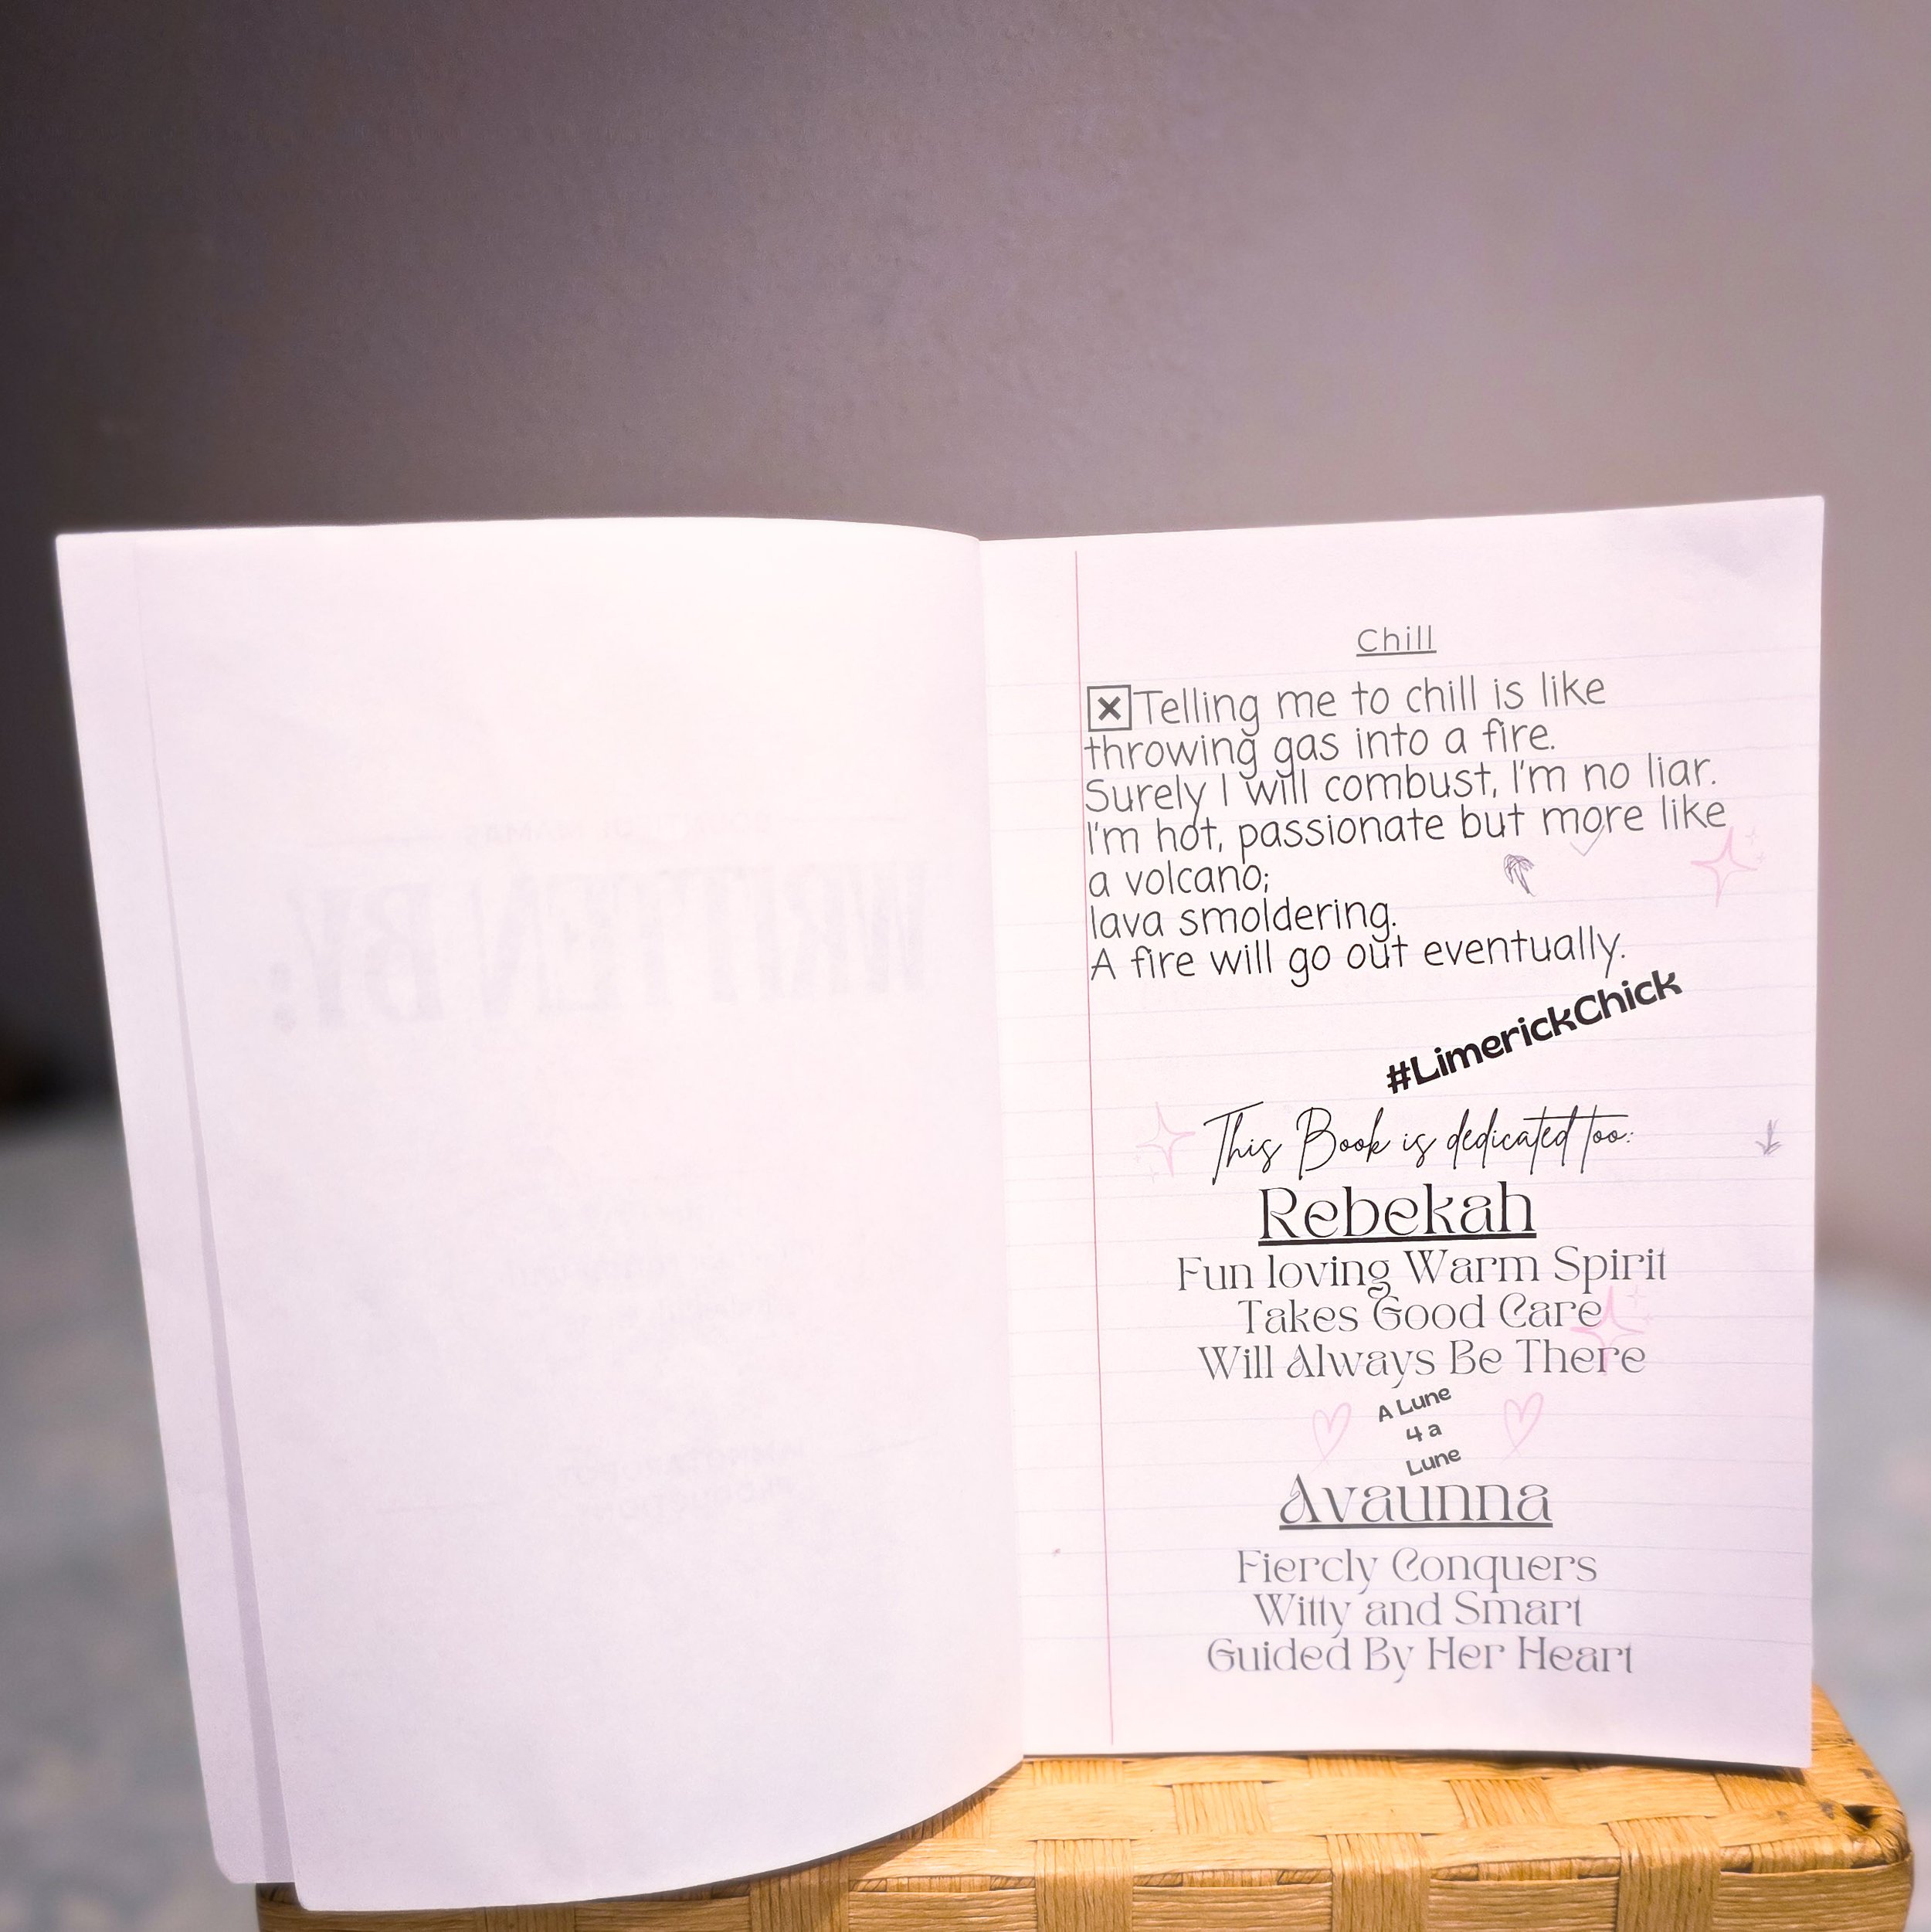 WRITTEN BY:
Chill
Telling me to chill is like
throwing gas into a fire.
Surely I will combust, I'm no liar.
I'm hot, passionate but more like
a volcano;
lava smoldering.
A fire will go out eventually.
#LimerickChick
This Book is dedicated too:
Rebekah
Fun loving Warm Spirit
Takes Good Care
Will Always Be There
A Lune
4 a
Lune
Avaunna
Fiercly Conquers
Witty and Smart
Guided By Her Heart